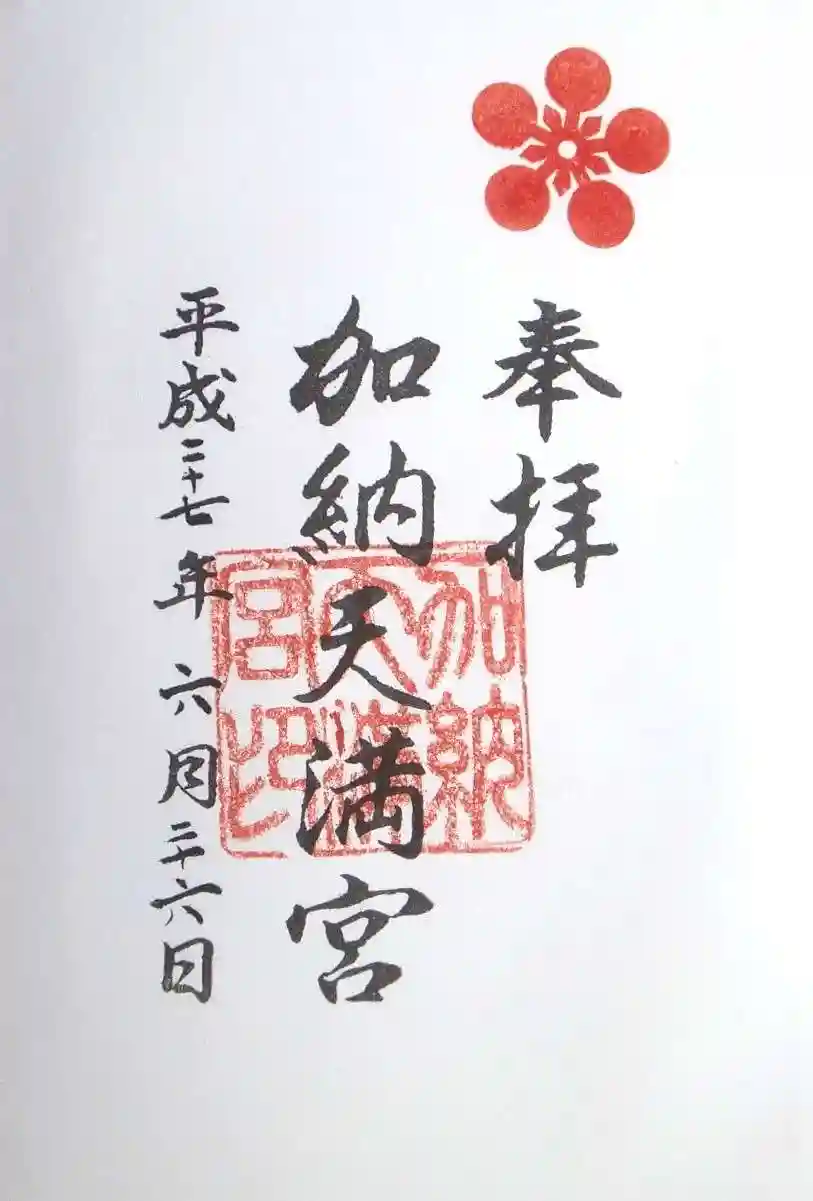 奉拝
加納天満宮
平成二十七年 六月二十六日
加納天満宮印